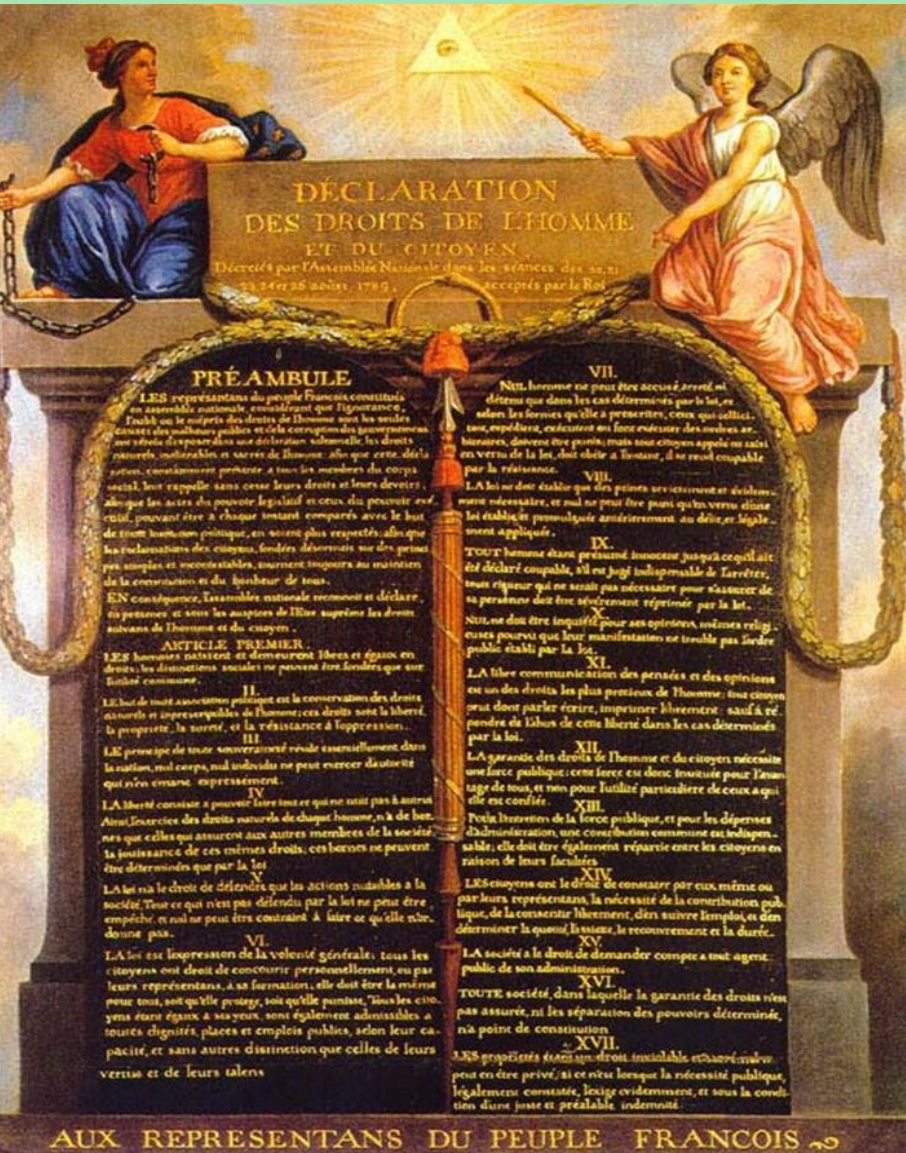 DÉCLARATION
DES DROITS DE L'HOMME
ET DU CITOYEN
Décretés par l'Assemblée Nationale dans les séances des 20, 21
23, 24 et 26 août 1789, acceptés par le Roi
PRÉAMBULE
LES représentans du peuple François, constitués
en assemblée nationale, considérant que l'ignorance,
l'oubli ou le mépris des droits de l'homme sont les seules
causes des malheurs publics et de la corruption des gouvernemens
ont résolu d'exposer dans une déclaration solemnelle, les droits
naturels, inaliénables et sacrés de l'homme; afin que cette décla
ration, constamment présente a tous les membres du corps
social, leur rappelle sans cesse leurs droits et leurs devoirs;
afin que les actes du pouvoir legislatif et ceux du pouvoir exé
cutif, pouvant être à chaque instant comparés avec le but
de toute institution politique, en soient plus respectés; afin que
les reclamations des citoyens, fondées désormais sur des princi
pes simples et incontestables, tournent toujours au maintien
de la constitution et du bonheur de tous.
EN conséquence, l'assemblée nationale reconnoit et déclare,
en presence et sous les auspices de l'Etre suprême les droits
suivans de l'homme et du citoyen.
ARTICLE PREMIER.
LES hommes naissent et demeurent libres et égaux en
droits; les distinctions sociales ne peuvent être fondées que sur
l'utilité commune.
II.
LE but de toute association politique est la conservation des droits
naturels et inprescriptibles de l'homme; ces droits sont la liberté,
la propriété, la sureté, et la résistance à l'oppression.
III.
LE principe de toute souveraineté réside essentiellement dans
la nation, nul corps, nul individu ne peut exercer d'autorité
qui n'en emane expressément.
IV
LA liberté consiste a pouvoir faire tout ce qui ne nuit pas à autrui
Ainsi, l'exercice des droits naturels de chaque homme, n'a de bor
nes que celles qui assurent aux autres membres de la société
la jouissance de ces mêmes droits; ces bornes ne peuvent
être déterminées que par la loi
V
LA loi n'a le droit de défendre que les actions nuisibles a la
société. Tout ce qui n'est pas défendu par la loi ne peut être
empêché, et nul ne peut être contraint à faire ce qu'elle n'or-
donne pas.
VI.
LA loi est l'expression de la volonté générale; tous les
citoyens ont droit de concourir personnellement, ou par
leurs représentans, à sa formation; elle doit être la même
pour tous, soit qu'elle protege, soit qu'elle punisse. Tous les cito-
yens étant égaux à ses yeux, sont également admissibles a
toutes dignités, places et emplois publics, selon leur ca-
pacité, et sans autres distinction que celles de leurs
vertus et de leurs talens
VII.
NUL homme ne peut être accusé, arreté, ni
détenu que dans les cas déterminés par la loi, et
selon les formes qu'elle a prescrites, ceux qui sollici
tent, expédient, exécutent ou font exécuter des ordres ar-
bitraires, doivent être punis; mais tout citoyen appelé ou saisi
en vertu de la loi, doit obéir a l'instant, il se rend coupable
par la résistance.
VIII.
LA loi ne doit établir que des peines strictement et évidem-
ment nécessaire, et nul ne peut être puni qu'en vertu d'une
loi établie et promulguée antérieurement au délit, et légale-
ment appliquée.
IX
TOUT homme étant présumé innocent jusqu'à ce qu'il ait
été déclaré coupable, s'il est jugé indispensable de l'arrêter,
toute rigueur qui ne serait pas nécessaire pour s'assurer de
sa personne doit être sévèrement réprimée par la loi.
X
NUL ne doit être inquiété pour ses opinions, mêmes religi
euses pourvu que leur manifestation ne trouble pas l'ordre
public établi par la loi.
XI.
LA libre communication des pensées et des opinions
est un des droits les plus precieux de l'homme; tout citoyen
peut dont parler écrire, imprimer librement: sauf à ré
pondre de l'abus de cette liberté dans les cas déterminés
par la loi.
XII.
LA garantie des droits de l'homme et du citoyen nécessite
une force publique; cette force est donc instituée pour l'avan
tage de tous, et non pour l'utilité particuliere de ceux a qui
elle est confiée.
XIII.
Pour l'entretien de la force publique, et pour les dépenses
d'administration, une contribution commune est indispen-
sable; elle doit être également répartie entre les citoyens en
raison de leurs facultées
XIV.
LES citoyens ont le droit de constater par eux même ou
par leurs représentans, la nécessité de la contribution pub-
lique, de la consentir librement, d'en suivre l'emploi, et d'en
déterminer la quotité, l'assiette, le recouvrement et la durée.
XV.
LA société a le droit de demander compte a tout agent
public de son administration.
XVI.
TOUTE société, dans laquelle la garantie des droits n'est
pas assurée, ni les séparation des pouvoirs déterminée,
n'a point de constitution
XVII.
LES propriétés étant un droit inviolable et sacré, nul ne
peut en être privé, si ce n'est lorsque la nécessité publique,
légalement constatée, l'exige evidemment, et sous la condi-
tion d'une juste et préalable indemnité.
AUX REPRESENTANS DU PEUPLE FRANCOIS